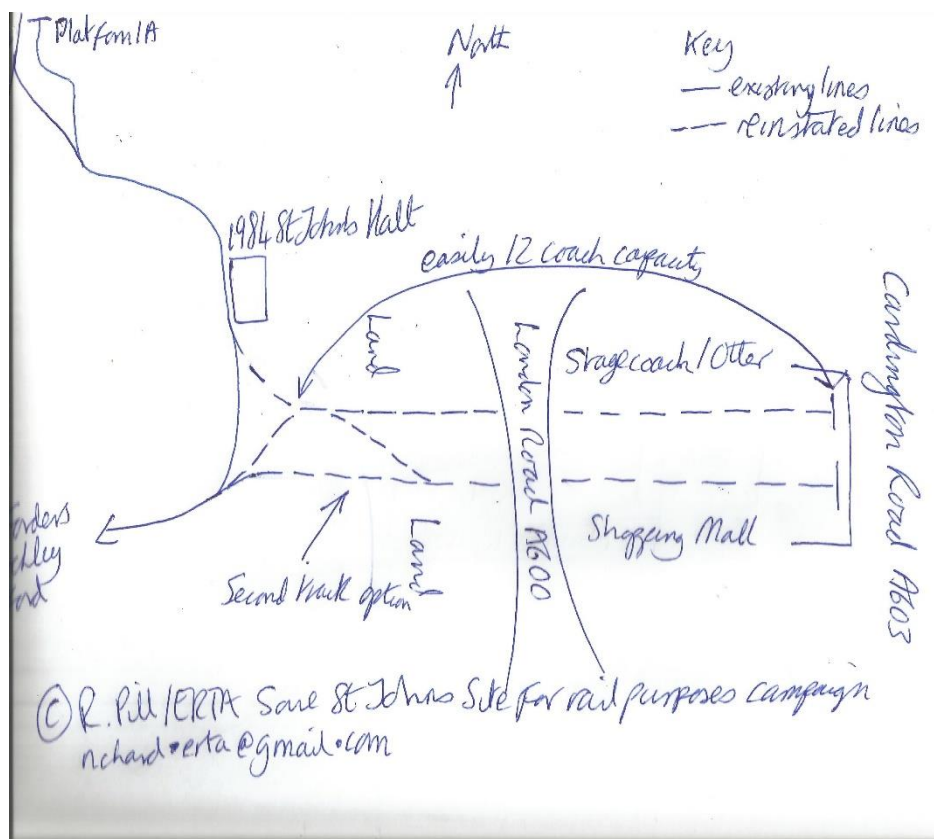 Platform 1A
North
Key
existing lines
reinstated lines
1984 St Johns Halt
easily 12 coach capacity
Land
London Road A600
Stagecoach/Otter
Cardington Road A603
Shopping Mall
Land
Second track option
© R. Pill/ERTA Save St Johns Site for rail purposes campaign
richard.erta@gmail.com